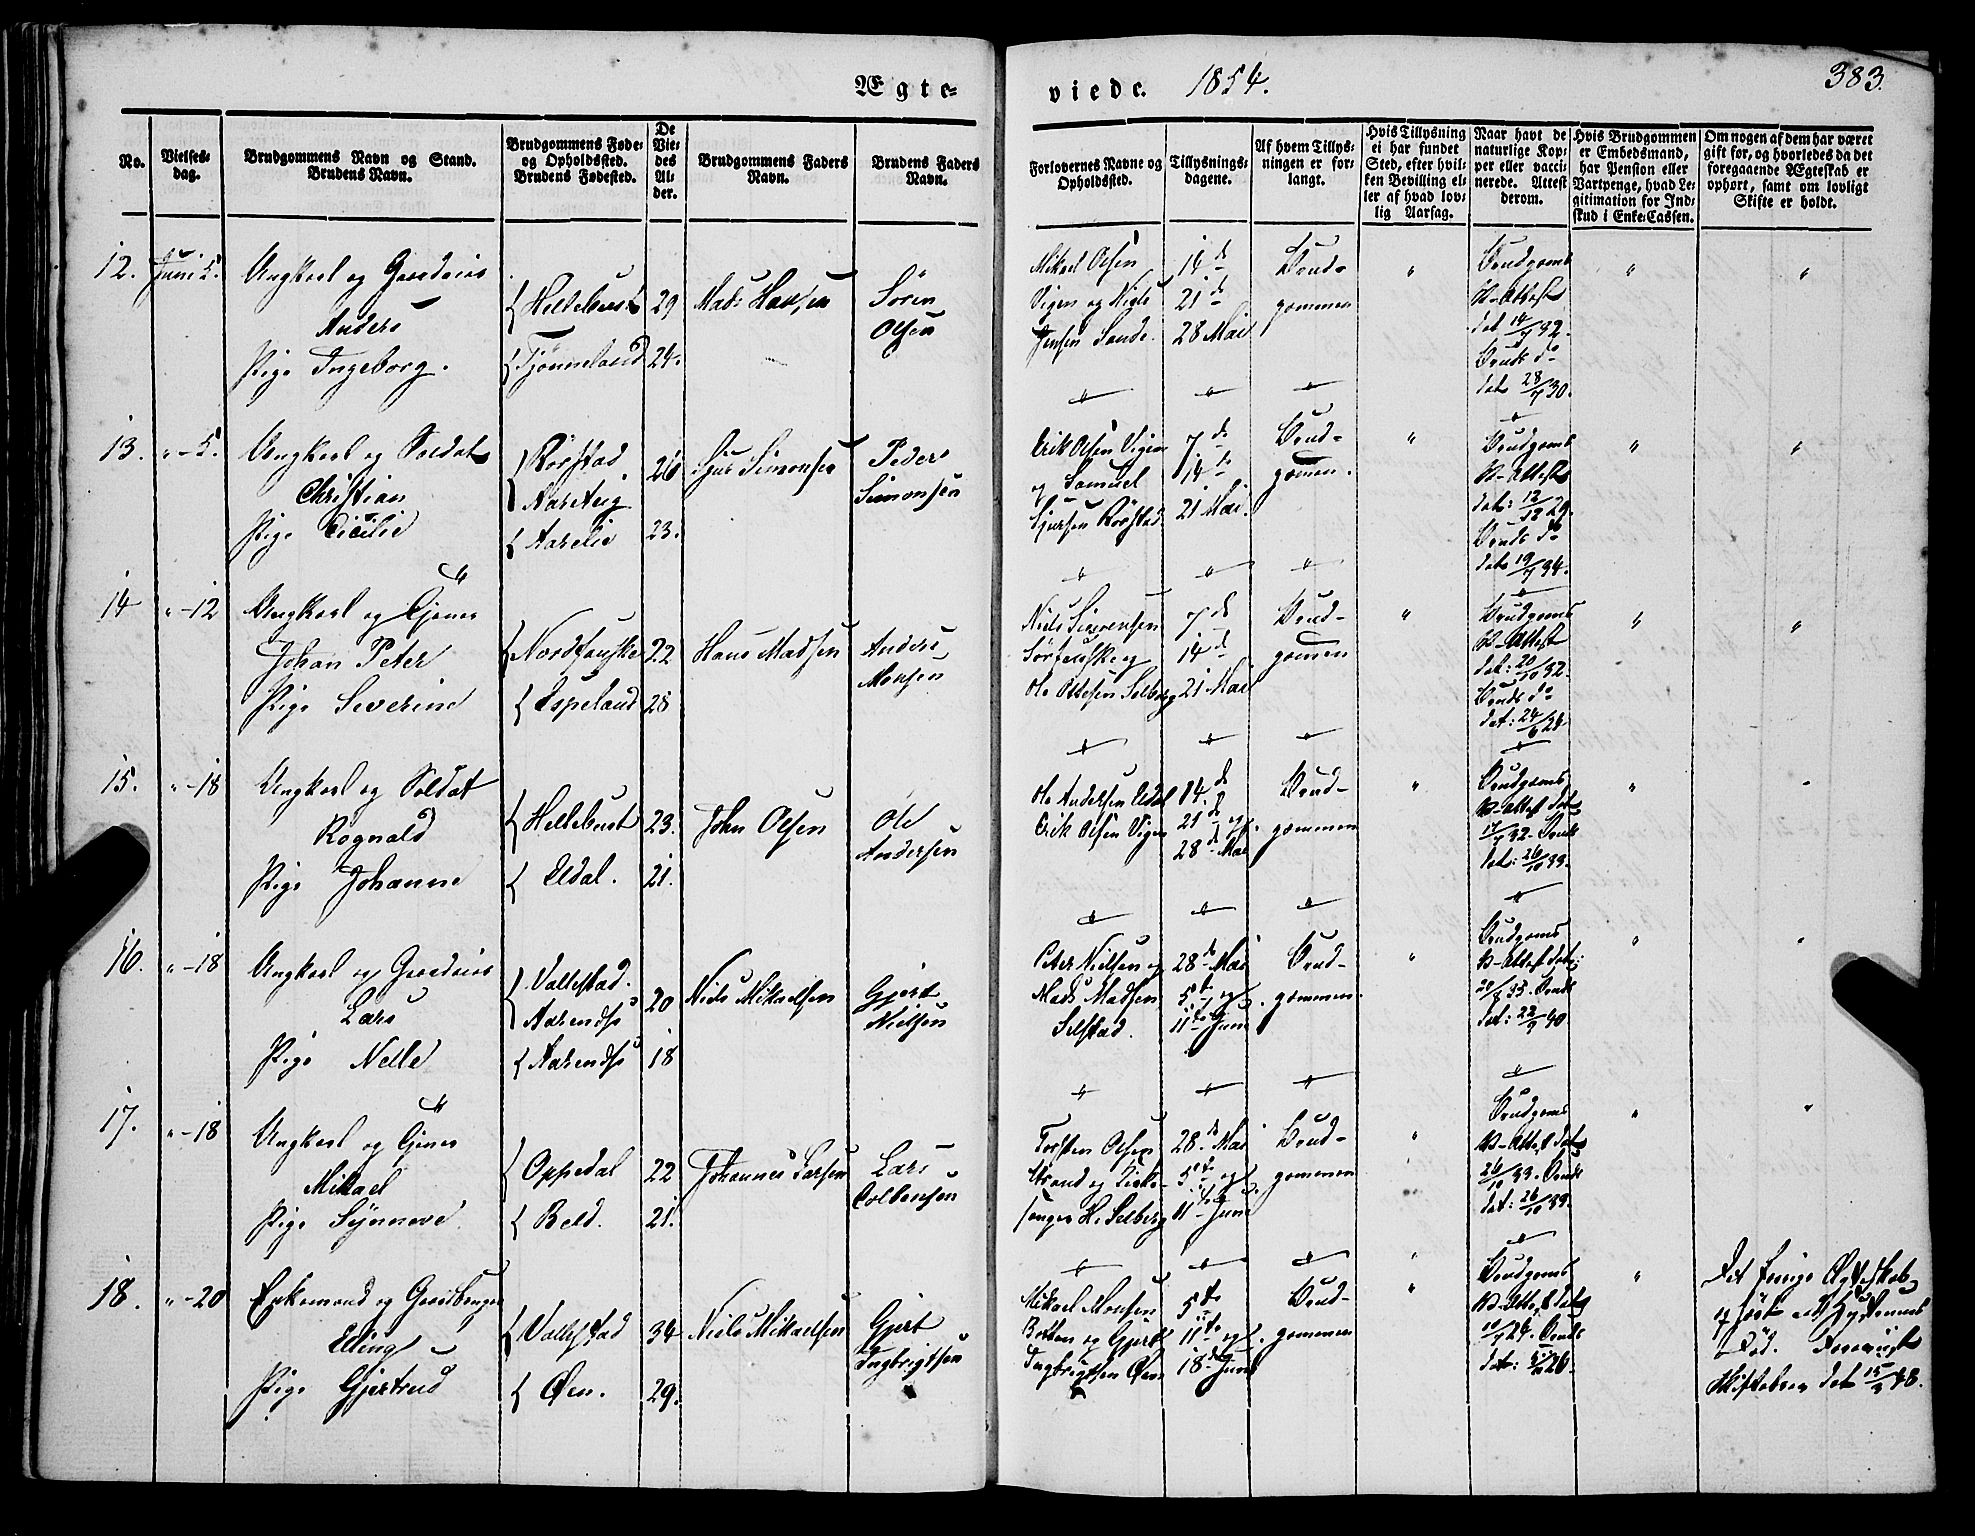 Ægte-
viede. 1854.
383.
No.
Vielses-
dag.
Brudgommens Navn og Stand.
Brudens Navn.
Brudgommens Føde-
og Opholdssted.
Brudens Fødested.
De
Vie-
des
Al-
der.
Brudgommens Faders
Navn.
Brudens Faders
Navn.
Forlovernes Navne og
Opholdssted.
Tillysnings-
dagene.
Af hvem Tillys-
ningen er for-
langt.
Hvis Tillysning
ei har fundet
Sted, efter hvil-
ken Bevilling el-
ler af hvad lov-
lig Aarsag.
Naar havt de
naturlige Kop-
per eller vacci-
nerede. Attest
derom.
Hvis Brudgommen
er Embedsmand,
har Pension eller
Vartpenge, hvad Le-
gitimation for Ind-
skud i Enke-Cassen.
Om nogen af dem har været
gift før, og hvorledes da det
foregaaende Ægteskab er
ophørt, samt om lovligt
Skifte er holdt.
12. Juni 5. Ungkarl og Gaardeier
Anders
Pige Ingeborg.
Hellebust 29 Mads Hansen
Tjønneland 24.
Sören
Olsen
Mikael Olsen
Vigen og Niels
Jensen Sande.
14 d
21 d
28 Mai
Brud-
gommen
Brudgoms
V-Attest
dat 14/7 32.
Bruds do
dat 28/7 30.
13. " - 5. Ungkarl og Soldat
Christian
Pige Cicilie
Rörstad
Aarsteig
Aarelie
26
23.
Sjur Simonsen
Peder
Simonsen
Erik Olsen Vigen
og Samuel
Sjursen Rörstad
7 d
14 d
21 Mai.
Brud-
gomen.
Brudgoms
V-Attest
dat: 12/12 29.
Bruds do
dat 19/7 34.
14 " - 12 Ungkarl og Tjener
Johan Peter
Pige Severine
Nordfauske 22 Hans Madsen
Espeland 28
Anders
Monsen
Niels Siverensen
Sörfauske og
Ole Ottesen Selberg
7 d
14 d
21 Mai
Brud-
gomen
Brudgoms
V-Attest
dat: 20/10 32.
Bruds do
dat: 24/6
15. " - 18 Ungkarl og Soldat
Rognald
Pige Johanne
Hellebust 23. John Olsen
Eldal. 21.
Ole
Andersen
Ole Andersen Eldal
Erik Olsen Vigen
14. d
21 d og
28 d Mai
Brud-
gommen
Brudgoms
V-Attest dat
17/7 32. Bruds
dat: 26/10 33.
16. " - 18 Ungkarl og Gaardeier
Lars
Pige Nelle
Vallestad.
Aarends
Aarends
20
18
Niels Mikaelsen
Gjert
Nielsen
Peter Nielsen og
Mads Madsen
Selstad.
28 d Mai
5 t og
11 t Juni
Brud-
gommen.
Brudgoms
V-Attest dat:
35. Bruds
dat: 22/9 40
17. " - 18 Ungkarl og Tjener
Mikael
Pige Synneve.
Oppedal 22 Johannes Larsen
Beld. 21.
Lars
Colbensen
Torsten Olsen
Strand og Kirke-
sanger H. Selberg
28. d Mai
5 t og
11 t Juni
Brud-
gommen
Brudgoms
V-Attest dat
26/10 33. Bruds
dat: 26/10 33.
18. " - 20 Enkemand og Gaardbruger
Elling
Pige Gjertrud
Vallestad 34 Niels Mikaelsen
Øen. 29.
Gjert
Ingbrigtsen
Mikael Monsen
Botten og Gjert
Ingbrigtsen Øen
5 t
11 t og
18 d Juni
Brud-
gommen
Brudgoms
V-Attest dat
24. Bruds
dat: 26.
Det forrige Ægteskab
Død.
Skiftebrev dat 15/3 48.